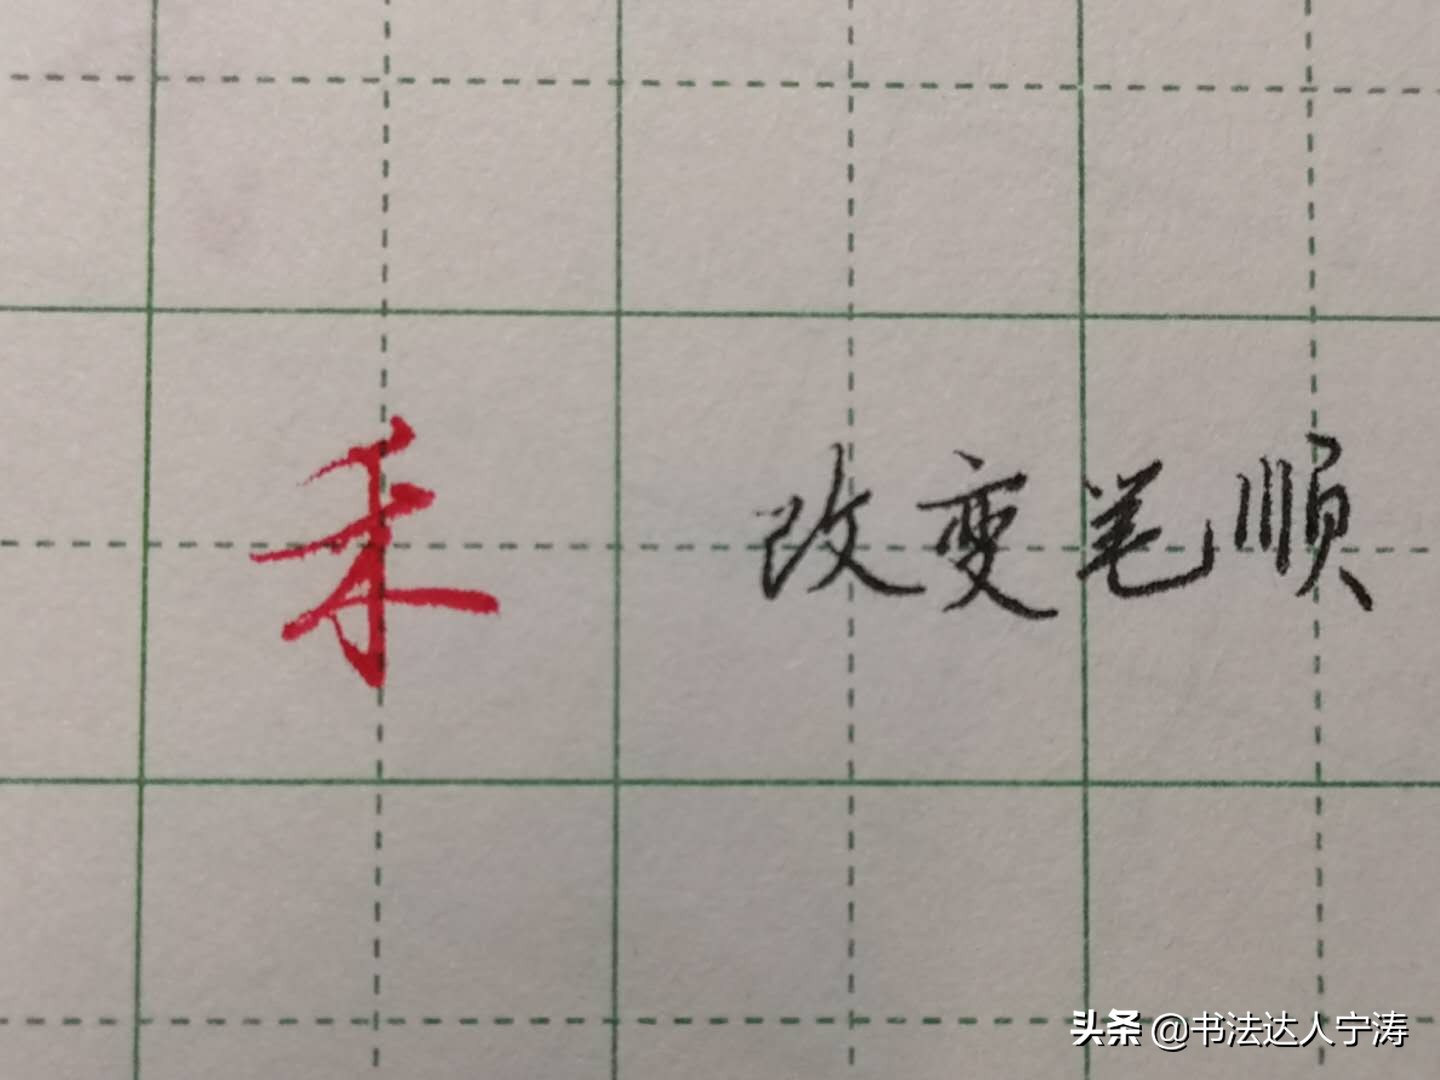 禾 改变笔顺
头条 @书法达人宁涛